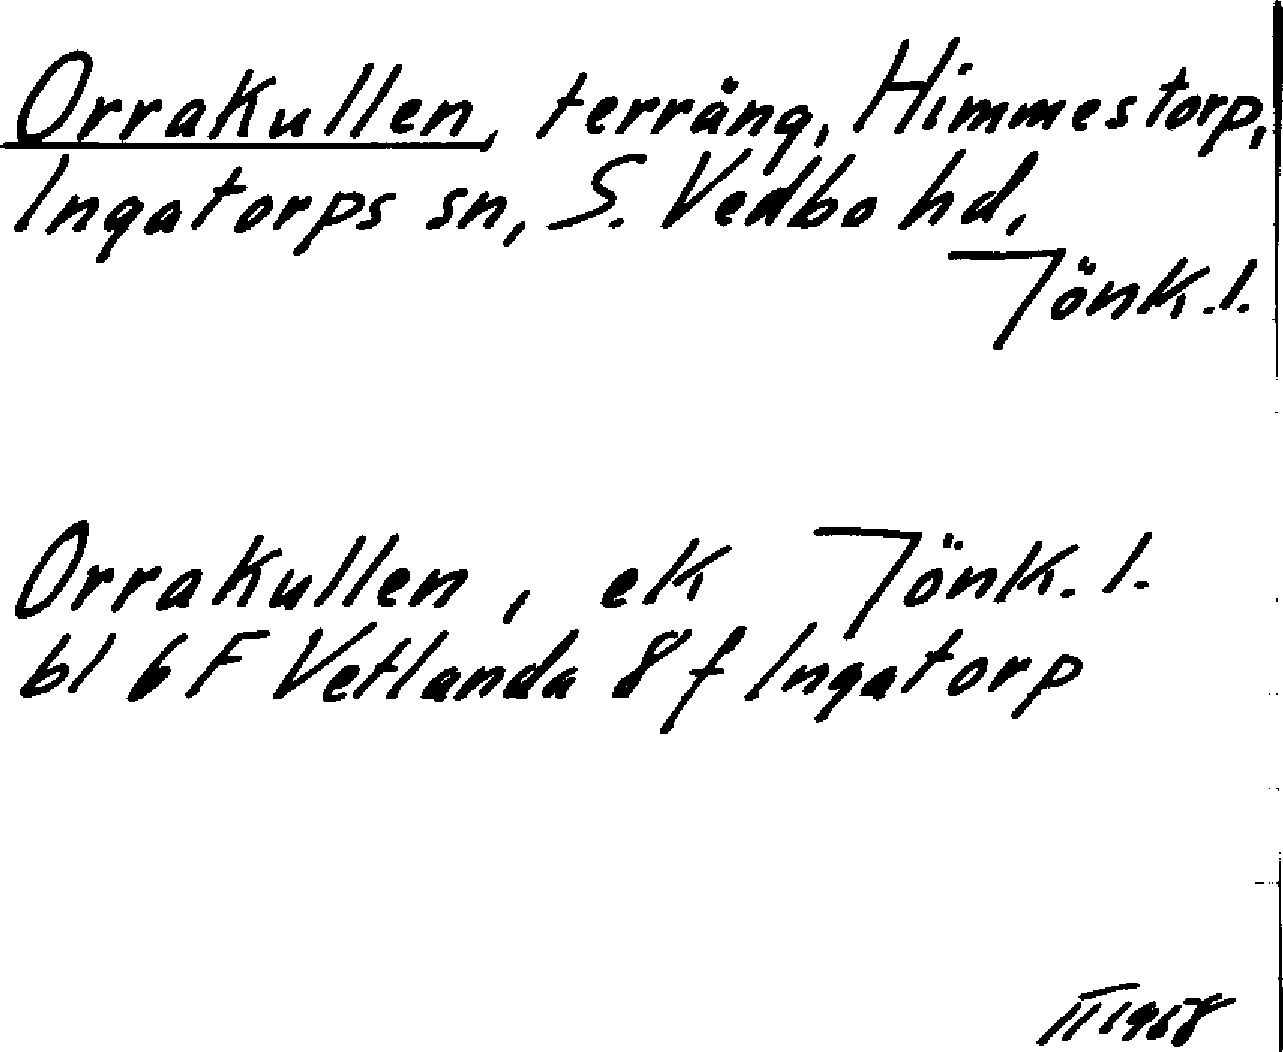 Orrakullen, terräng, Himmestorp,
Ingatorps sn, S. Vedbo hd,
Jönk.l.
Orrakullen, ek Jönk. l.
bl 6 F Vetlanda 8 f Ingatorp
II 1968